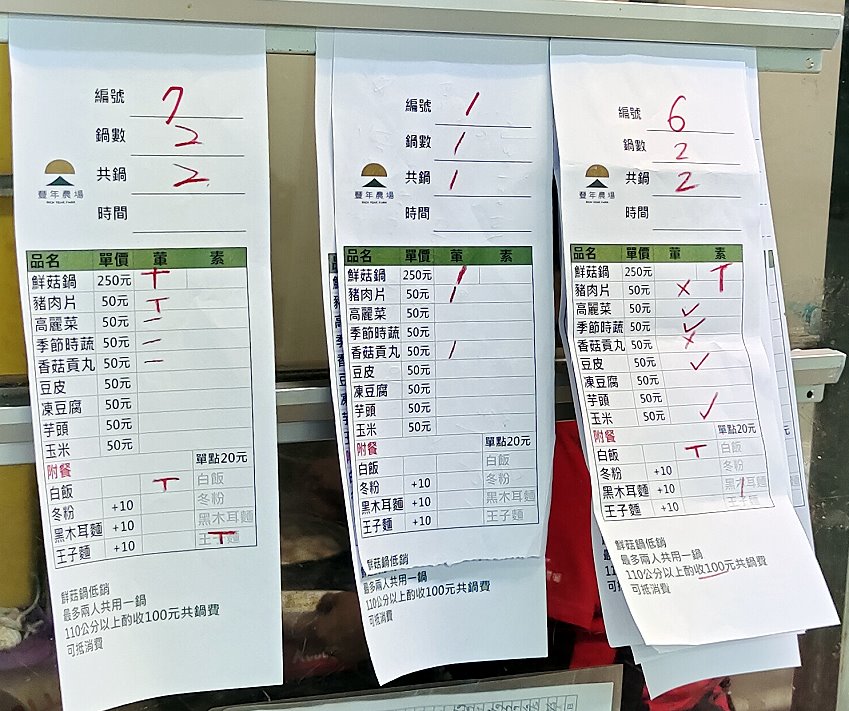 編號 7
鍋數 2
共鍋 2
豐年農場
時間
品名 單價 葷 素
鮮菇鍋 250元
豬肉片 50元 T
高麗菜 50元 一
季節時蔬 50元 一
香菇貢丸 50元 一
豆皮 50元
凍豆腐 50元
芋頭 50元
玉米 50元
附餐 單點20元
白飯 T 白飯
冬粉 +10 冬粉
黑木耳麵 +10 黑木耳麵
王子麵 +10 王子麵 T
鮮菇鍋低銷
最多兩人共用一鍋
110公分以上酌收100元共鍋費
可抵消費
編號 1
鍋數 1
共鍋 1
豐年農場
時間
品名 單價 葷 素
鮮菇鍋 250元 /
豬肉片 50元 /
高麗菜 50元
季節時蔬 50元
香菇貢丸 50元 /
豆皮 50元
凍豆腐 50元
芋頭 50元
玉米 50元
附餐 單點20元
白飯 白飯
冬粉 +10 冬粉
黑木耳麵 +10 黑木耳麵
王子麵 +10 王子麵
鮮菇鍋低銷
最多兩人共用一鍋
110公分以上酌收100元共鍋費
可抵消費
編號 6
鍋數 2
共鍋 2
豐年農場
時間
品名 單價 葷 素
鮮菇鍋 250元 T
豬肉片 50元 ×
高麗菜 50元 ✓
季節時蔬 50元 ✓
香菇貢丸 50元 ×
豆皮 50元 ✓
凍豆腐 50元
芋頭 50元
玉米 50元 ✓
附餐 單點20元
白飯 T 白飯
冬粉 +10 冬粉
黑木耳麵 +10 黑木耳麵
王子麵 +10 王子麵
鮮菇鍋低銷
最多兩人共用一鍋
110公分以上酌收100元共鍋費
可抵消費